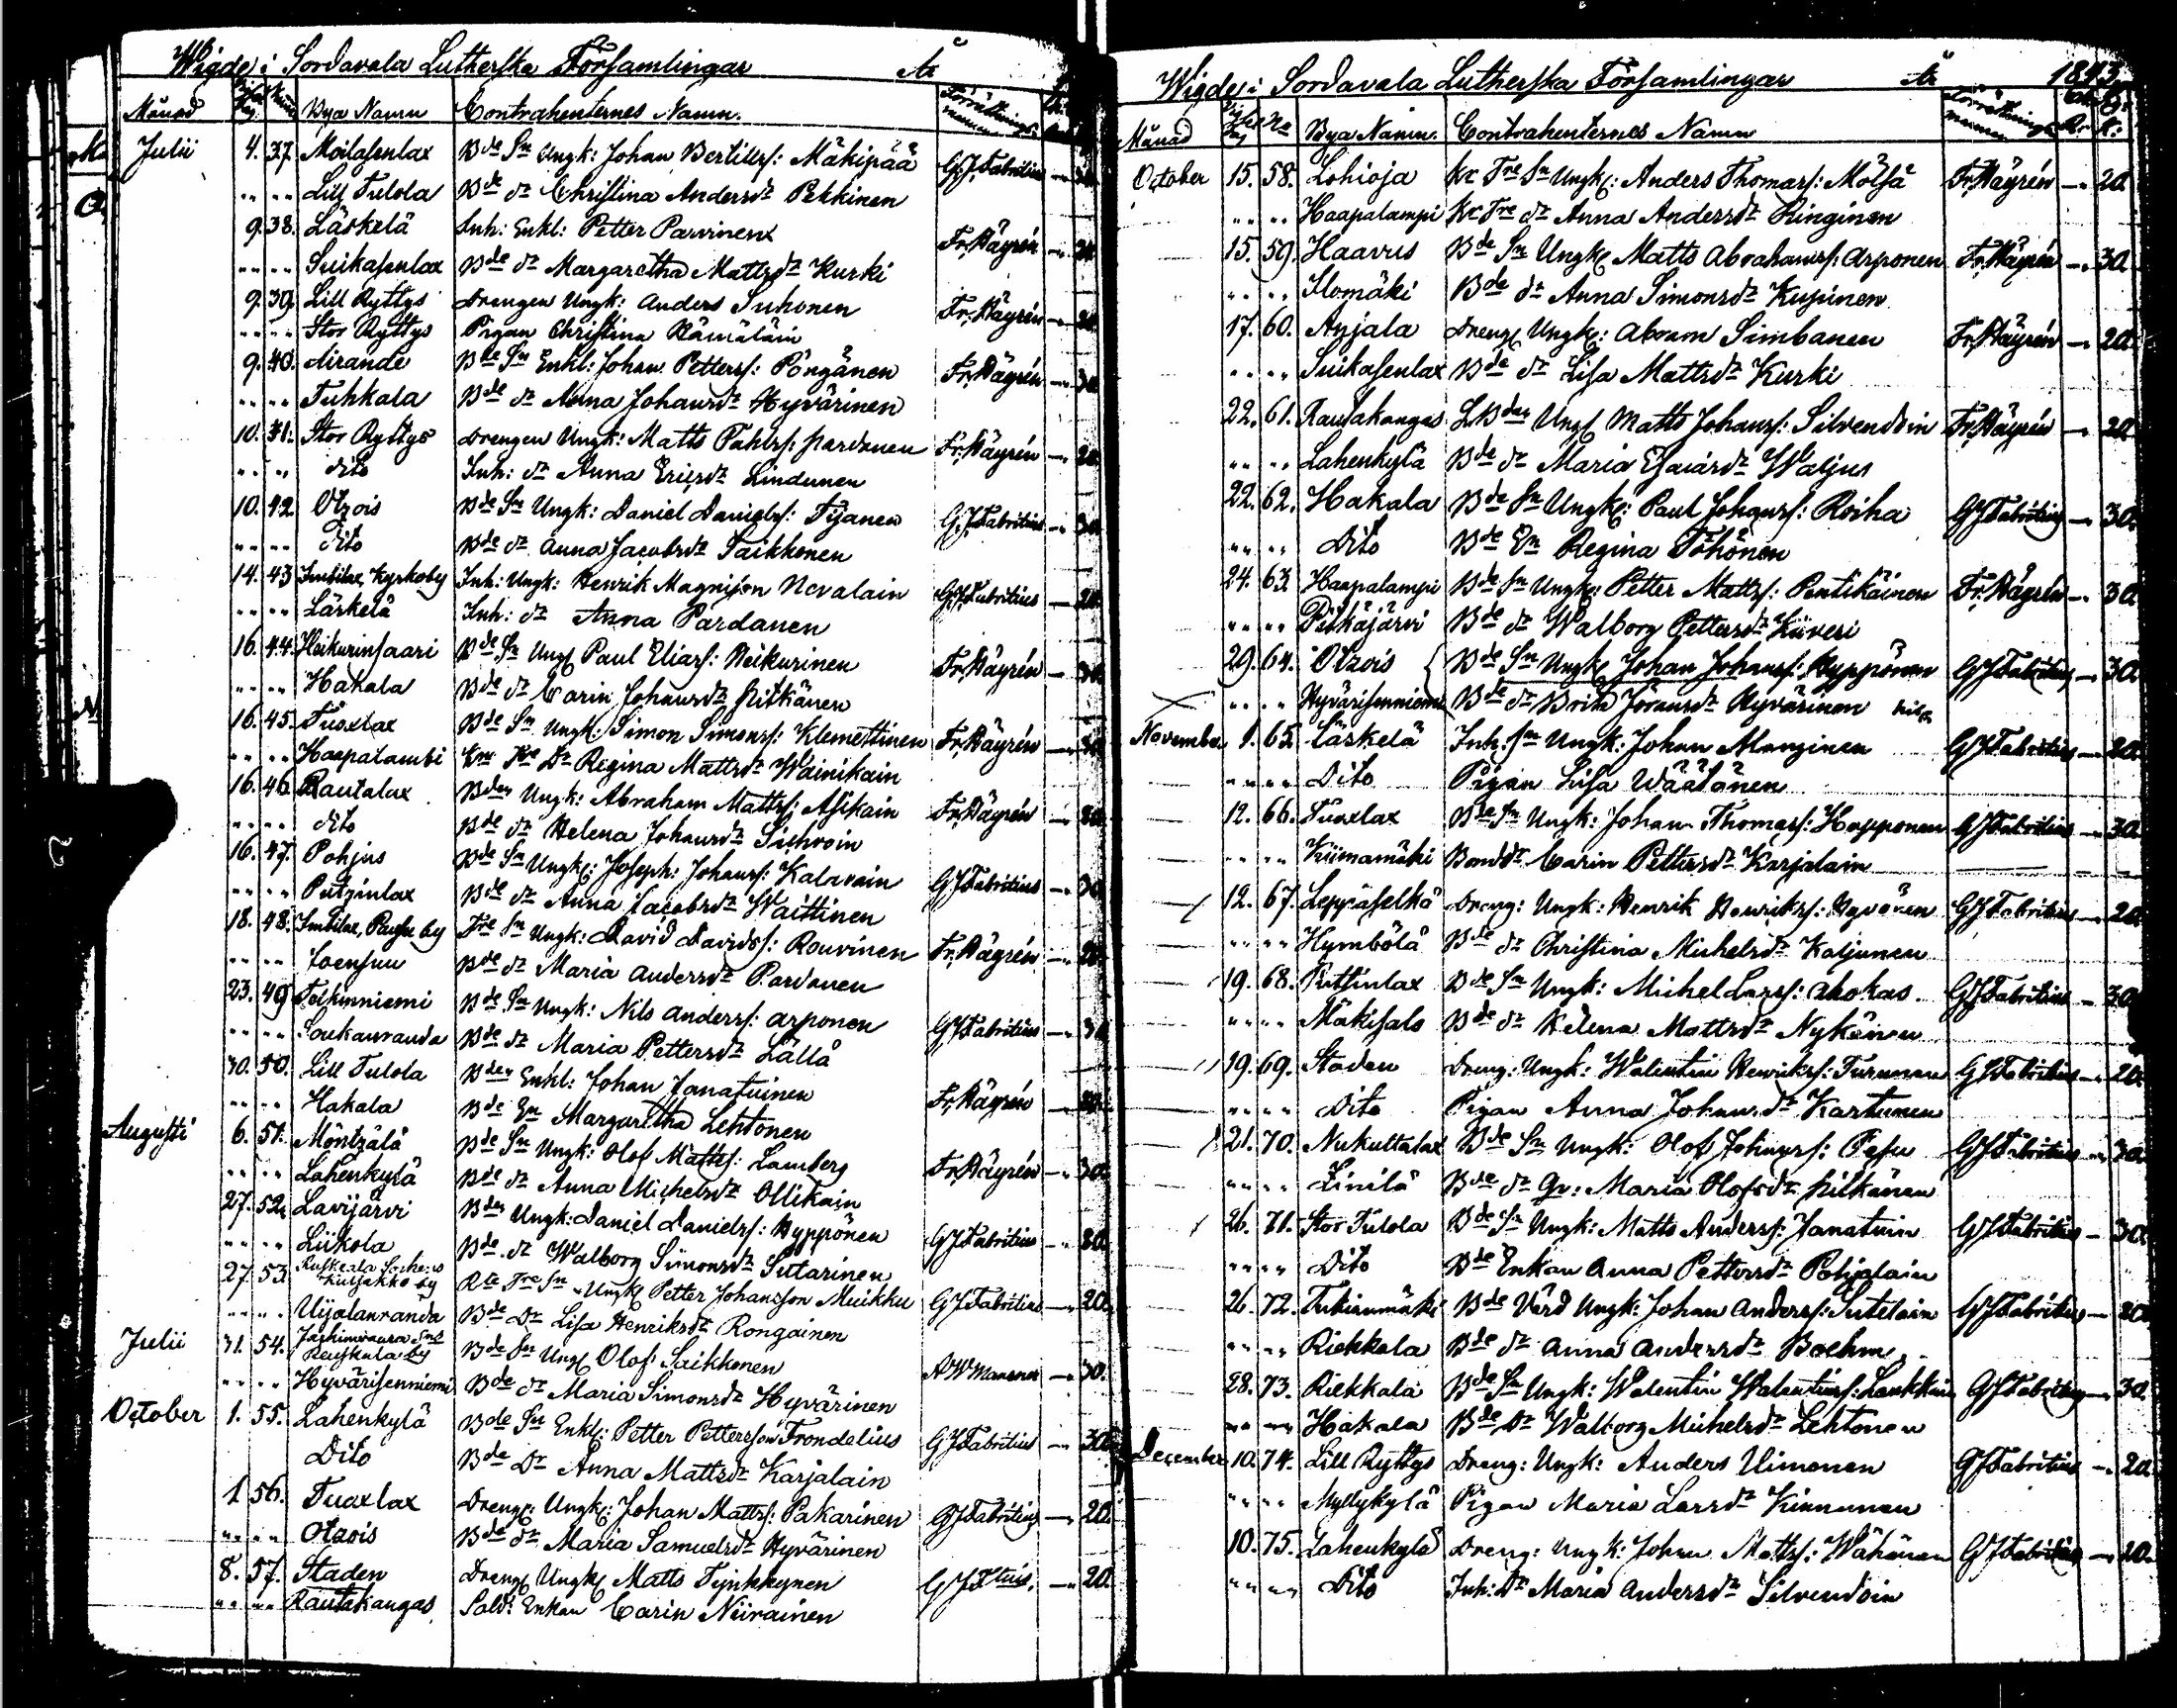 Wigde i Sordavala Lutherska Församlingar År
Månad Bya Namn Contrahenternes Namn. Förrättnings mannen
Julii 4. 37. Moilasenlax Bde Sn Ungk: Johan Bertills: Mäkipää G.J. Fabritius — 30.
" " " " Lill Tulola Bde dr Christina Andersdr Pekkinen
9. 38. Läskelä Inh: Enkl: Petter Parvinen Fr. Häyrén — 20.
" " " " Suikasenlax Bde dr Margaretha Mattsdr Kurki
9. 39. Lill Ryttys Drengen Ungk: Anders Suhonen Fr. Häyrén — 20.
" " " " Stor Ryttys Pigan Christina Hämäläin
9. 40. Airande Bde Sn Enkl: Johan Petters: Pöngänen Fr. Häyrén — 30.
" " " " Tuhkala Bde dr Anna Johansdr Hyvärinen
10. 41. Stor Ryttys Drengen Ungk: Matts Påhls: Pardanen Fr. Häyrén — 20.
" " " dito Inh: dr Anna Ericsdr Lindunen
10. 42. Otzois Bde Sn Ungk: Daniel Daniels: Tijanen G.J. Fabritius — 30.
" " " " Dito Bde dr Anna Jacobsdr Saikkonen
14. 43. Imbilax, Kyrkoby Inh: Ungk: Henrik Magnisson Nevalain G.J. Fabritius — 20.
" " " " Läskelä Inh: dr Anna Pardanen
16. 44. Heikurinsaari Bde Sn Ungk Paul Elias: Heikurinen Fr. Häyrén — 30.
" " " " Hakala Bde dr Carin Johansdr Pitkänen
16. 45. Tuoxlax Bde Sn Ungk: Simon Simons: Klemettinen Fr. Häyrén — 30.
" " " " Haapalambi Dr Regina Mattsdr Wainikain
16. 46. Rautalax Bden Ungk: Abraham Matts: Asikain Fr. Häyrén — 30.
" " " " dito Bde dr Helena Johansdr Sichvoin
16. 47. Pohjus Bde Sn Ungk: Joseph: Johans: Kalavain GJ Fabritius — 30.
" " " " Putzinlax Bde dr Anna Jacobsdr Waittinen
18. 48. Imbilax, by Tre Sn Ungk: David Davids: Rouvinen Fr. Häyrén — 20.
" " " " Joensuu Bde dr Maria Andersdr Pardanen
23. 49. Tolkunniemi Bde Sn Ungk: Nils Anders: Arponen GJ Fabritius — 30.
" " " " Loukanranda Bde dr Maria Pettersdr Lällä
30. 50. Lill Tulola Bden Enkl: Johan Janatuinen Fr. Häyrén — 30.
" " " " Hakala Bde En Margaretha Lehtonen
Augusti 6. 51. Möntzälä Bde Sn Ungk: Olof Matts: Lamberg Fr. Häyrén — 30.
" " " " Lahenkylä Bde dr Anna Michelsdr Ollikain
27. 52. Lavijärvi Bden Ungk: Daniel Daniels: Hyppönen GJ Fabritius — 30.
" " " " Liikola Bde dr Walborg Simonsdr Sutarinen
27. 53. Ruskeala by Rta Tre Sn Ungk Petter Johansson Muikku GJ Fabritius — 20.
" " " " Uijalanranda Bde Dr Lisa Henriksdr Rongainen
Julii 31. 54. by Bde Sn Ungk Olof Saikkonen — 30.
" " " " Hyvärisenniemi Bde dr Maria Simonsdr Hyvärinen
October 1. 55. Lahenkylä Bde Sn Enkl: Petter Pettersson Frondelius GJ Fabritius — 30.
Dito Bde Dr Anna Mattsdr Karjalain
1. 56. Tuoxlax Drenge: Ungk: Johan Matts: Pakarinen GJ Fabritius — 20.
" " " " Otzois Bde dr Maria Samuelsdr Hyvärinen
8. 57. Staden Dreng Ungk Matts Tynkkynen GJ Ftuis. — 20.
" " " " Rautakangas Sold: Enkan Carin Neirainen
Wigde i Sordavala Lutherska Församlingar År 1843
Månad No Bya Namn. Contrahenternes Namn Förrättnings mannen
October 15. 58. Lohioja Kr Tre Sn Ungk: Anders Thomas: Mölsä Fr. Häyrén — 20.
" " " " Haapalampi Kr Tre dr Anna Andersdr Ringinen
15. 59. Haavus Bde Sn Ungk Matts Abrahams: Arponen Fr. Häyrén — 30.
" " " " Ilomäki Bde dr Anna Simonsdr Kupinen
17. 60. Anjala Dreng Ungk: Abram Simbanen Fr. Häyrén — 20.
" " " " Suikasenlax Bde dr Lisa Mattsdr Kurki
22. 61. Rautakangas Ungk Matts Johans: Silvendoin Fr. Häyrén — 20.
" " " " Lahenkylä Bde dr Maria Esaiasdr Waljus
22. 62. Hakala Bde Sn Ungk: Paul Johans: Roiha GJ Fabritius — 30.
" " " " Dito Bde En Regina Töhönen
24. 63. Haapalampi Bde Sn Ungk: Petter Matts: Pentikäinen Fr. Häyrén — 30.
" " " " Pitkäjärvi Bde dr Walborg Pettersdr Kiiveri
29. 64. Otzois Bde Sn Ungk Johan Johans: Hyppönen GJ Fabritius — 30.
" " " " Hyvärisenniemi Bde dr Brita Göransdr Hyvärinen
November 1. 65. Läskelä Inh: Sn Ungk: Johan Manginen GJ Fabritius — 20.
" " " " Dito Pigan Lisa Wäätänen
12. 66. Tuoxlax Bde Sn Ungk: Johan Thomas: Happonen GJ Fabritius — 30.
" " " " Kiimamäki Bonddr Carin Pettersdr Karjalain
12. 67. Leppäselkä Dreng: Ungk: Henrik Henriks: Hyvönen GJ Fabritius — 20.
" " " " Hymbölä Bde dr Christina Michelsdr Kaljunen
19. 68. Puttsinlax Bde Sn Ungk: Michel Lars: Ahokas. GJ Fabritius — 30.
" " " " Mäkisalo Bde dr Helena Mattsdr Nykänen
19. 69. Staden Dreng: Ungk: Walentin Henriks: Turunen GJ Fabritius — 20.
" " " " Dito Pigan Anna Johansdr Kartunen
21. 70. Nukuttalax Bde Sn Ungk: Olof Johans: Pesu GJ Fabritius — 30.
" " " " Linilä Bde dr Maria Olofsdr Pitkänen
26. 71. Stor Tulola Bde Sn Ungk: Matts Anders: Janatuin GJ Fabritius — 30.
" " " " Dito Bde Enkan Anna Pettersdr Pohjalain
26. 72. Tukianmäki Bde Värd Ungk: Johan Anders: Sutelain GJ Fabritius — 20.
" " " " Riekkala Bde dr Anna Andersdr Boehm.
28. 73. Riekkala Bde Sn Ungk: Walentin Walentins: Laukkain GJ Fabritius — 30.
" " " " Hakala Bde Dr Walborg Michelsdr Lehtonen
December 10. 74. Lill Ryttys Dreng: Ungk: Anders Uimonen GJ Fabritius — 20.
" " " " Myllykylä Pigan Maria Larsdr Kinnunen
10. 75. Lahenkylä Dreng: Ungk: Johan Matts: Wähänen GJ Fabritius — 20.
" " " " Dito Inh: Dr Maria Andersdr Silvendoin